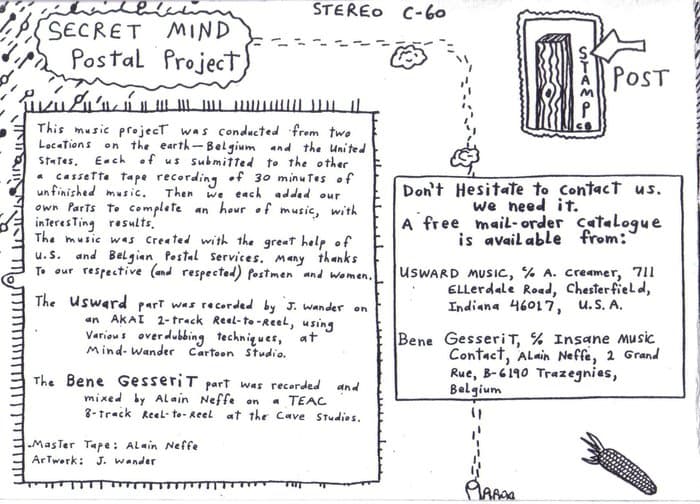 STEREO C-60
SECRET MIND
Postal Project
STAMP
POST
This music project was conducted from two
Locations on the earth—Belgium and the United
States. Each of us submitted to the other
a cassette tape recording of 30 minutes of
unfinished music. Then we each added our
own parts to complete an hour of music, with
interesting results.
The music was created with the great help of
U.S. and Belgian Postal Services. Many thanks
To our respective (and respected) Postmen and women.
The Usward part was recorded by J. Wander on
an AKAI 2-track Reel-to-Reel, using
Various overdubbing techniques, at
Mind-Wander Cartoon Studio.
The Bene GesseriT part was recorded and
mixed by Alain Neffe on a TEAC
8-track Reel-to-Reel at the Cave Studios.
Master Tape: Alain Neffe
Artwork: J. Wander
Don't Hesitate to contact us.
We need it.
A free mail-order catalogue
is available from:
USWARD MUSIC, c/o A. Creamer, 711
Ellerdale Road, Chesterfield,
Indiana 46017, U.S.A.
Bene GesseriT, c/o Insane Music
Contact, Alain Neffe, 2 Grand
Rue, B-6190 Trazegnies,
Belgium